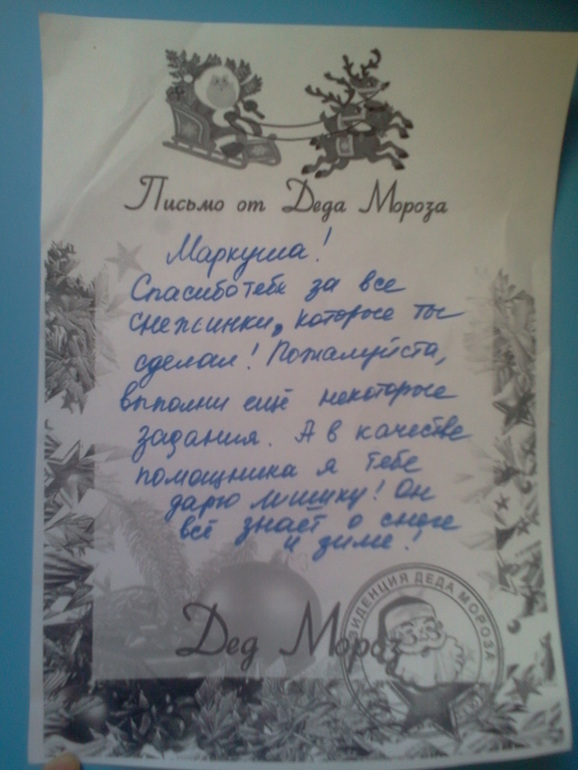 Письмо от Деда Мороза
Маркуша!
Спасибо тебе за все
снежинки, которые ты
сделал! Пожалуйста,
выполни ещё некоторые
задания. А в качестве
помощника я тебе
дарю мишку! Он
всё знает о снеге
и зиме!
Дед Мороз
РЕЗИДЕНЦИЯ ДЕДА МОРОЗА